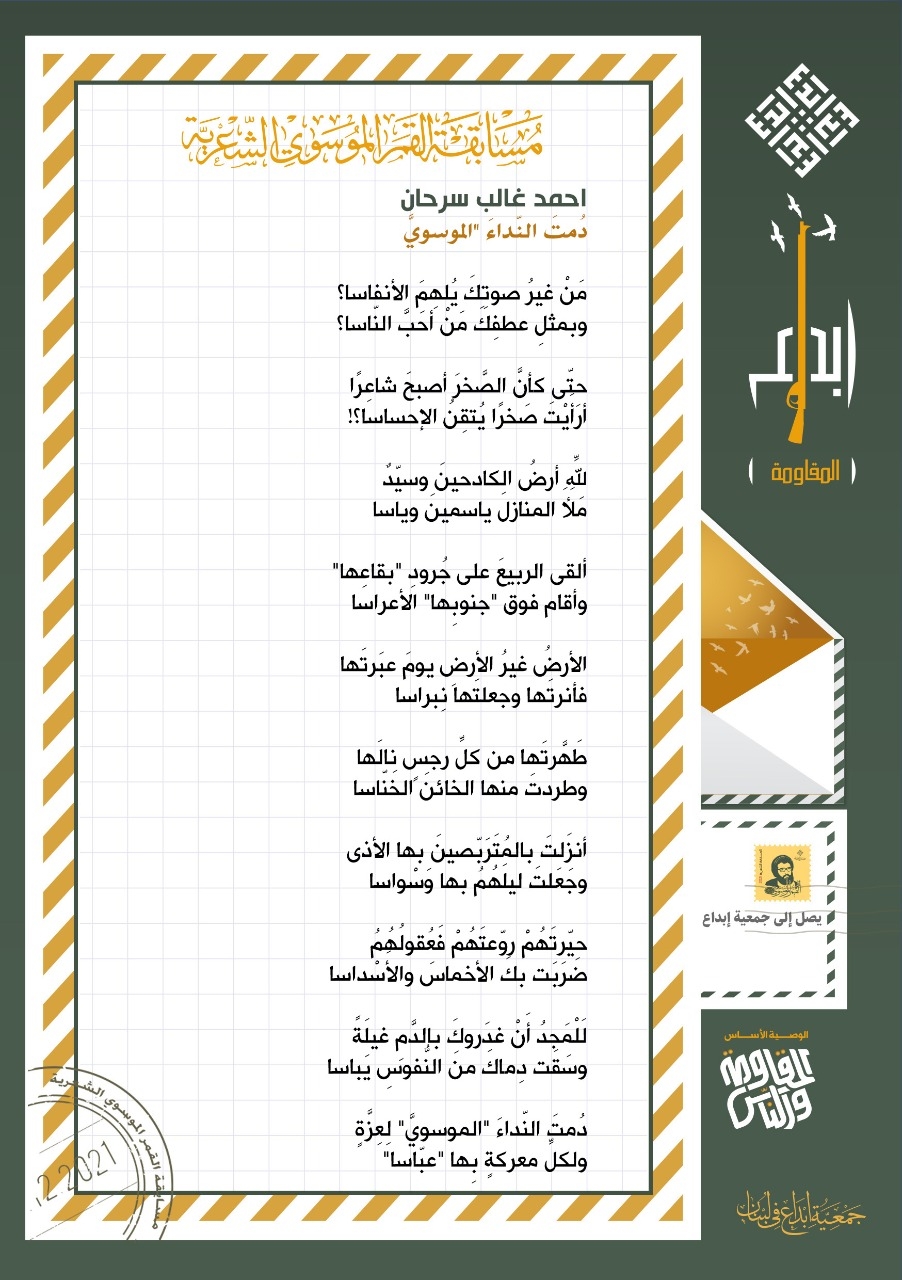 مُسَابَقَةُ القَمَرِ المُوسَوِيِّ الشِّعْرِيَّة
احمد غالب سرحان
دُمتَ النّداءَ "الموسويَّ
مَنْ غيرُ صوتِكَ يُلهِمَ الأنفاسا؟
وبمثلِ عطفِكَ مَنْ أحَبَّ النّاسا؟
حتّى كأنَّ الصَّخرَ أصبحَ شاعِرًا
أرَأيْتَ صَخرًا يُتقِنُ الإحساسا؟!
للّٰهِ أرضُ الكادحينَ وسيّدٌ
مَلأ المنازل ياسمين وياسا
ألقى الربيعَ على جُرودِ "بقاعِها"
وأقام فوق "جنوبِها" الأعراسا
الأرضُ غيرُ الأرضِ يومَ عبَرتَها
فأنرتها وجعلتها نِبراسا
طَهَّرتَها من كلِّ رجسٍ نالَها
وطردتَ منها الخائن الخنّاسا
أنزَلتَ بالمُتَرَبّصينَ بها الأذى
وجَعَلتَ ليلَهُمُ بها وَسْواسا
حيّرتَهُمْ روّعتَهُمْ فَعُقولُهُمُ
ضرَبَت بك الأخماسَ والأسْداسا
لَلْمَجدُ أنْ غدَروكَ بالدَّم غيلَةً
وسَقَت دِماكَ من النُّفوسَ يَباسا
دُمتَ النّداءَ "الموسويَّ" لِعِزَّةٍ
ولكلِّ معركةٍ بِها "عبّاسا"
إبداع
المقاومة
يصل إلى جمعية إبداع
الوصية الأساس
المقاومة والناس
جمعية إبداع في لبنان
مسابقة القمر الموسوي الشعرية
2 2021